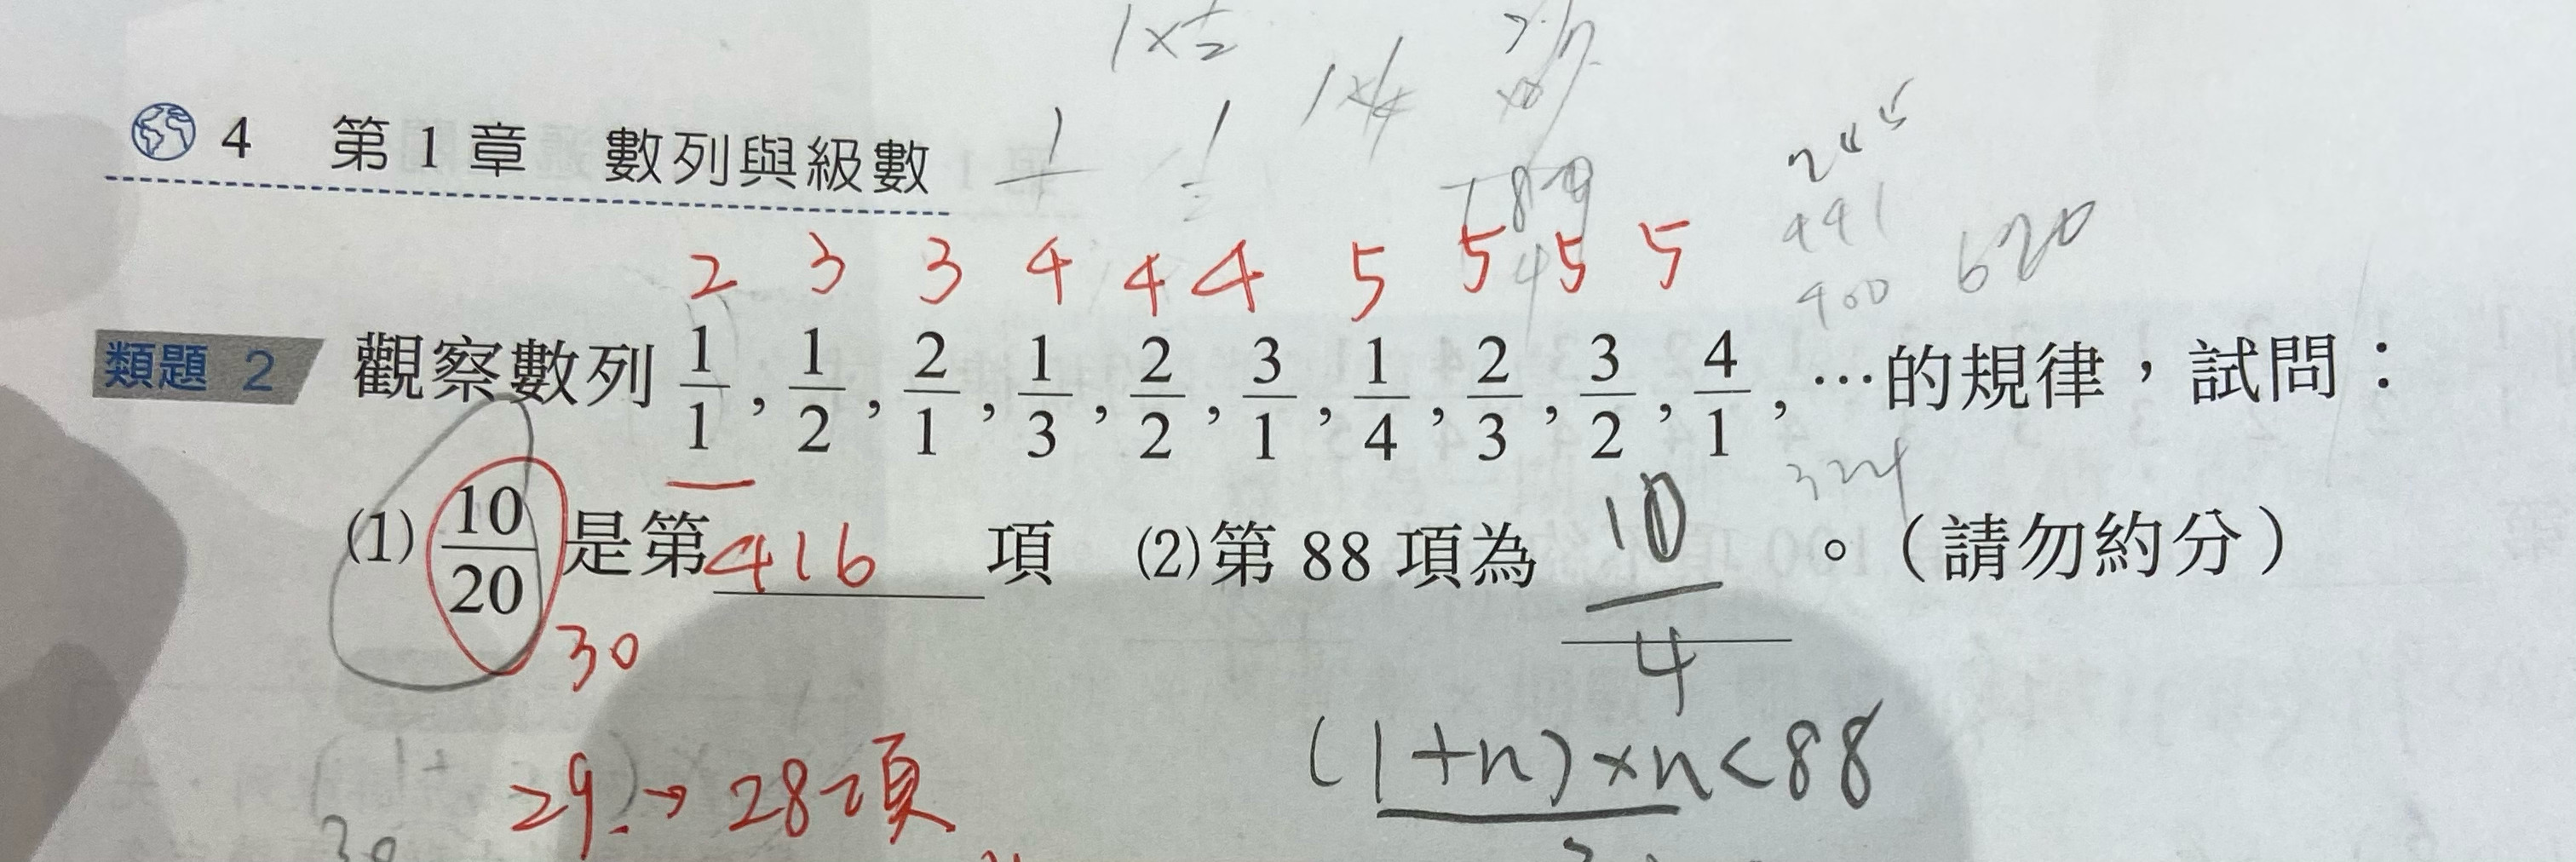 1×1/2
1×
4 第1章 數列與級數
245
441
400 620
2 3 3 4 4 4 5 5 5 5
類題 2 觀察數列 1/1, 1/2, 2/1, 1/3, 2/2, 3/1, 1/4, 2/3, 3/2, 4/1, …的規律，試問：
(1) 10/20 是第 416 項 (2)第 88 項為 10/4 。（請勿約分）
30
29 → 28項
(1+n)×n<88
30